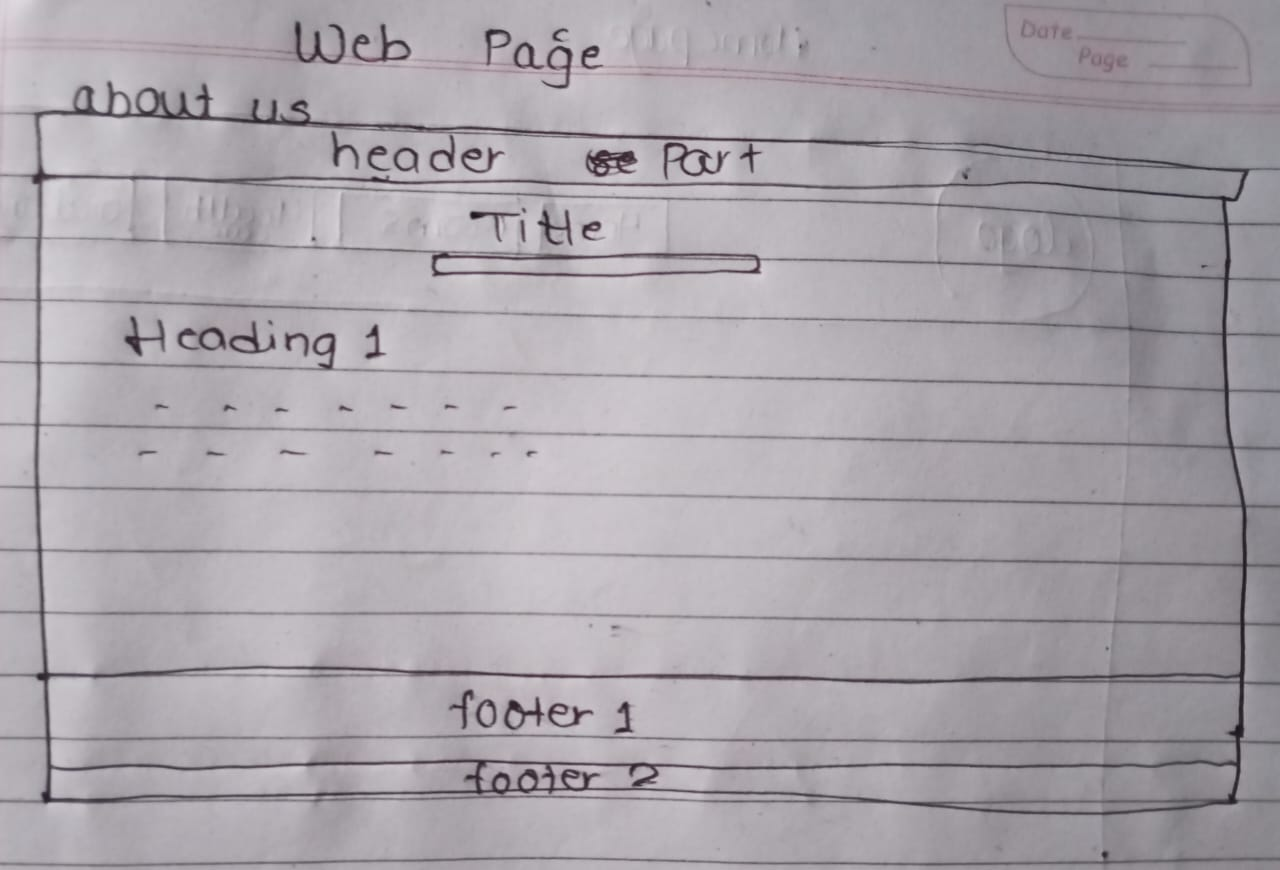 Web Page
Date
Page
about us
header Part
Title
Heading 1
footer 1
footer 2